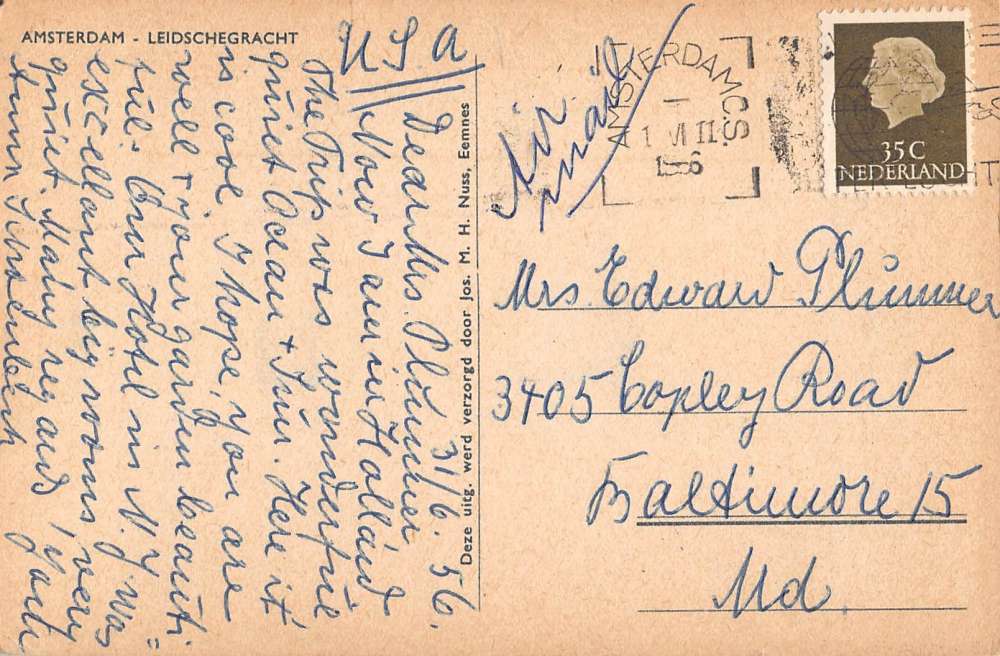 AMSTERDAM - LEIDSCHEGRACHT
USA
31/6. 56.
Dear Mrs. Plummer
Now I am in Holland
The Trip was wonderfull
quiet Ocean + Sun. Here it
is cool. I hope, you are
well + your garden beauti=
full. Our Hotel in N.Y was
excellant big rooms, very
quiet. Many regards, Your
Deze uitg. werd verzorgd door Jos. M. H. Nuss, Eemnes
Air
mail
AMSTERDAM C.S.
1 VI 11
1956
35 C
NEDERLAND
Mrs. Edward Plummer
3405 Copley Road
Baltimore 15
Md